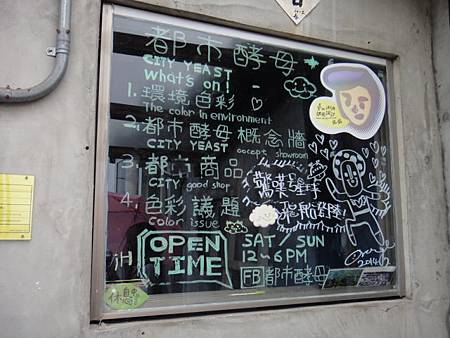 都市酵母
CITY YEAST
What's on!
1. 環境色彩
The color in environment
2. 都市酵母概念牆
CITY YEAST cocept showroom
3. 都市商品
CITY good shop
4. 色彩議題
Color issue
驚嘆星球
OPEN TIME
SAT / SUN
12~6PM
FB 都市酵母
2014
休息中